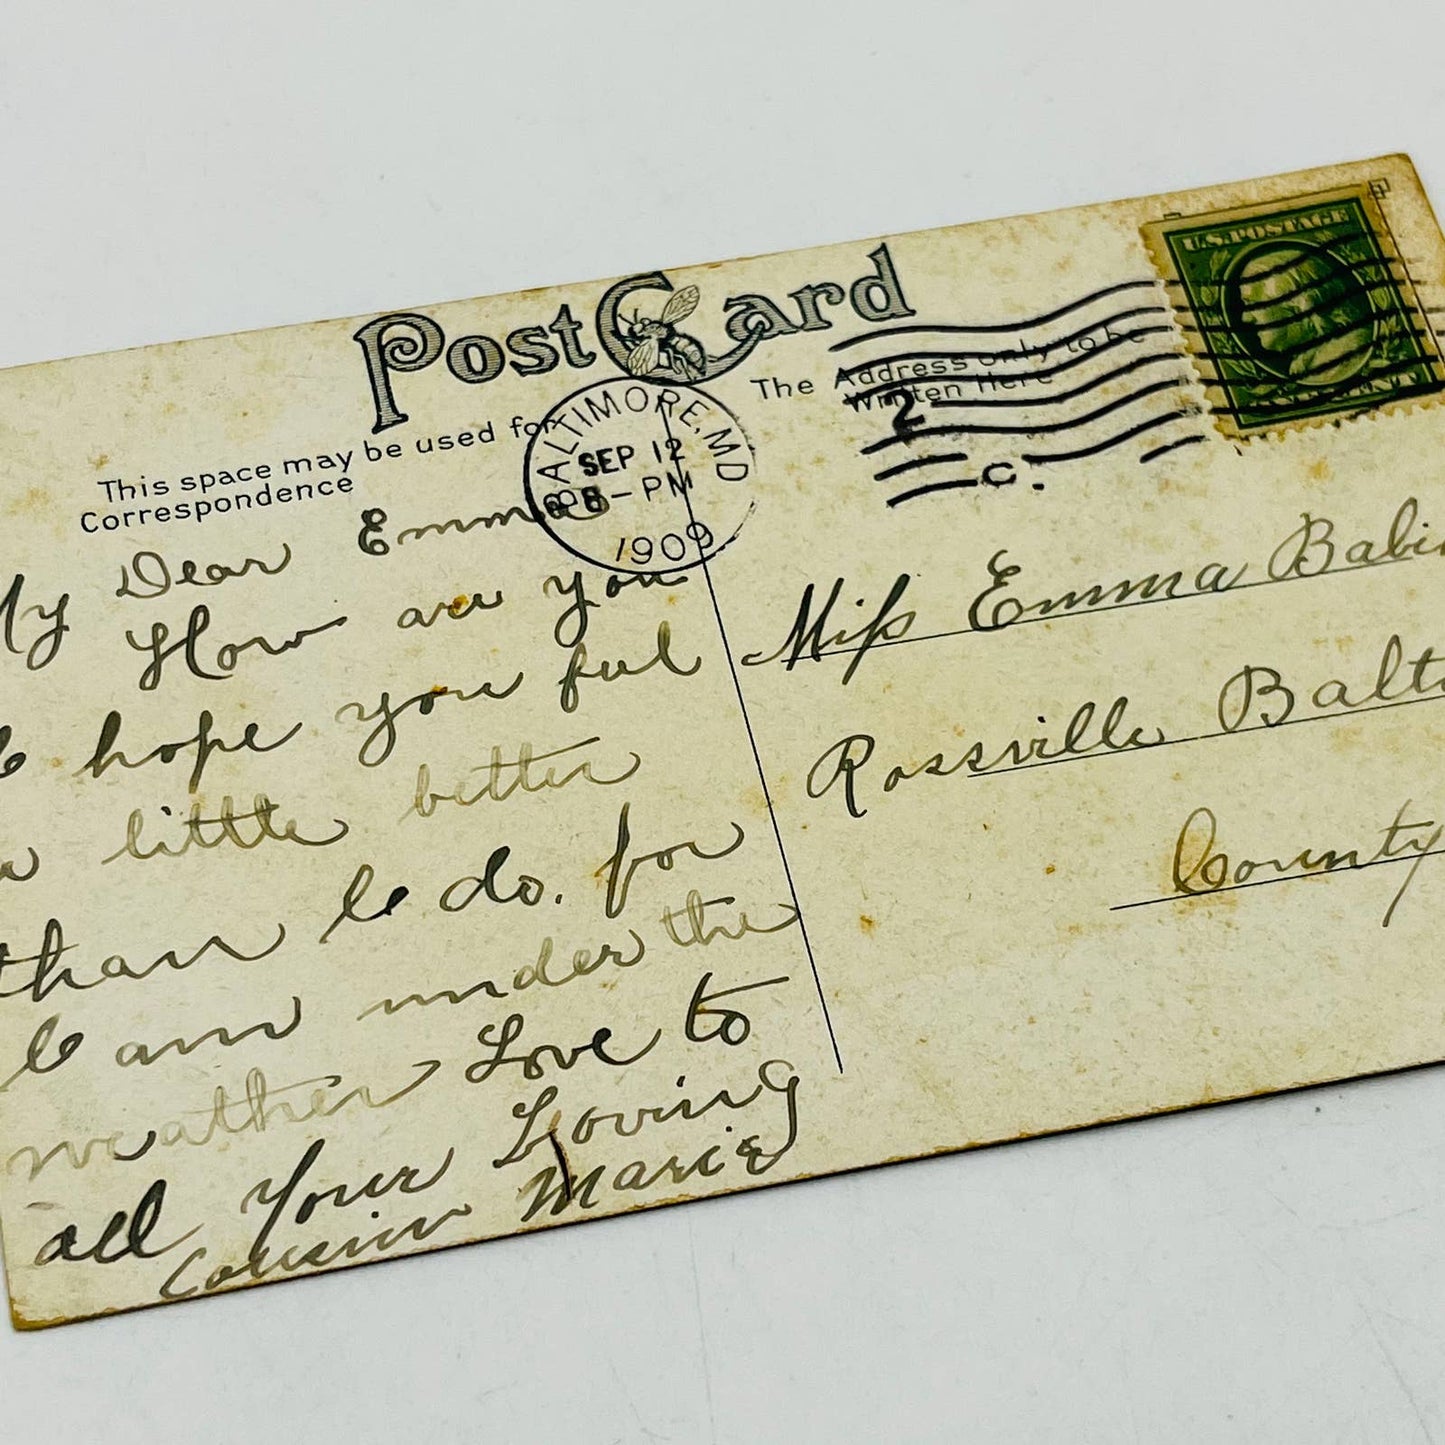 Post Card
This space may be used for
Correspondence
The Address only to be
Written Here
U.S. POSTAGE
BALTIMORE, MD
SEP 12
8-PM
1909
2
C.
My Dear Emma
How are you
I hope you ful
a little better
than I do. for
I am under the
weather Love to
all Your Loving
Cousin Marie
Miss Emma
Rossville
County